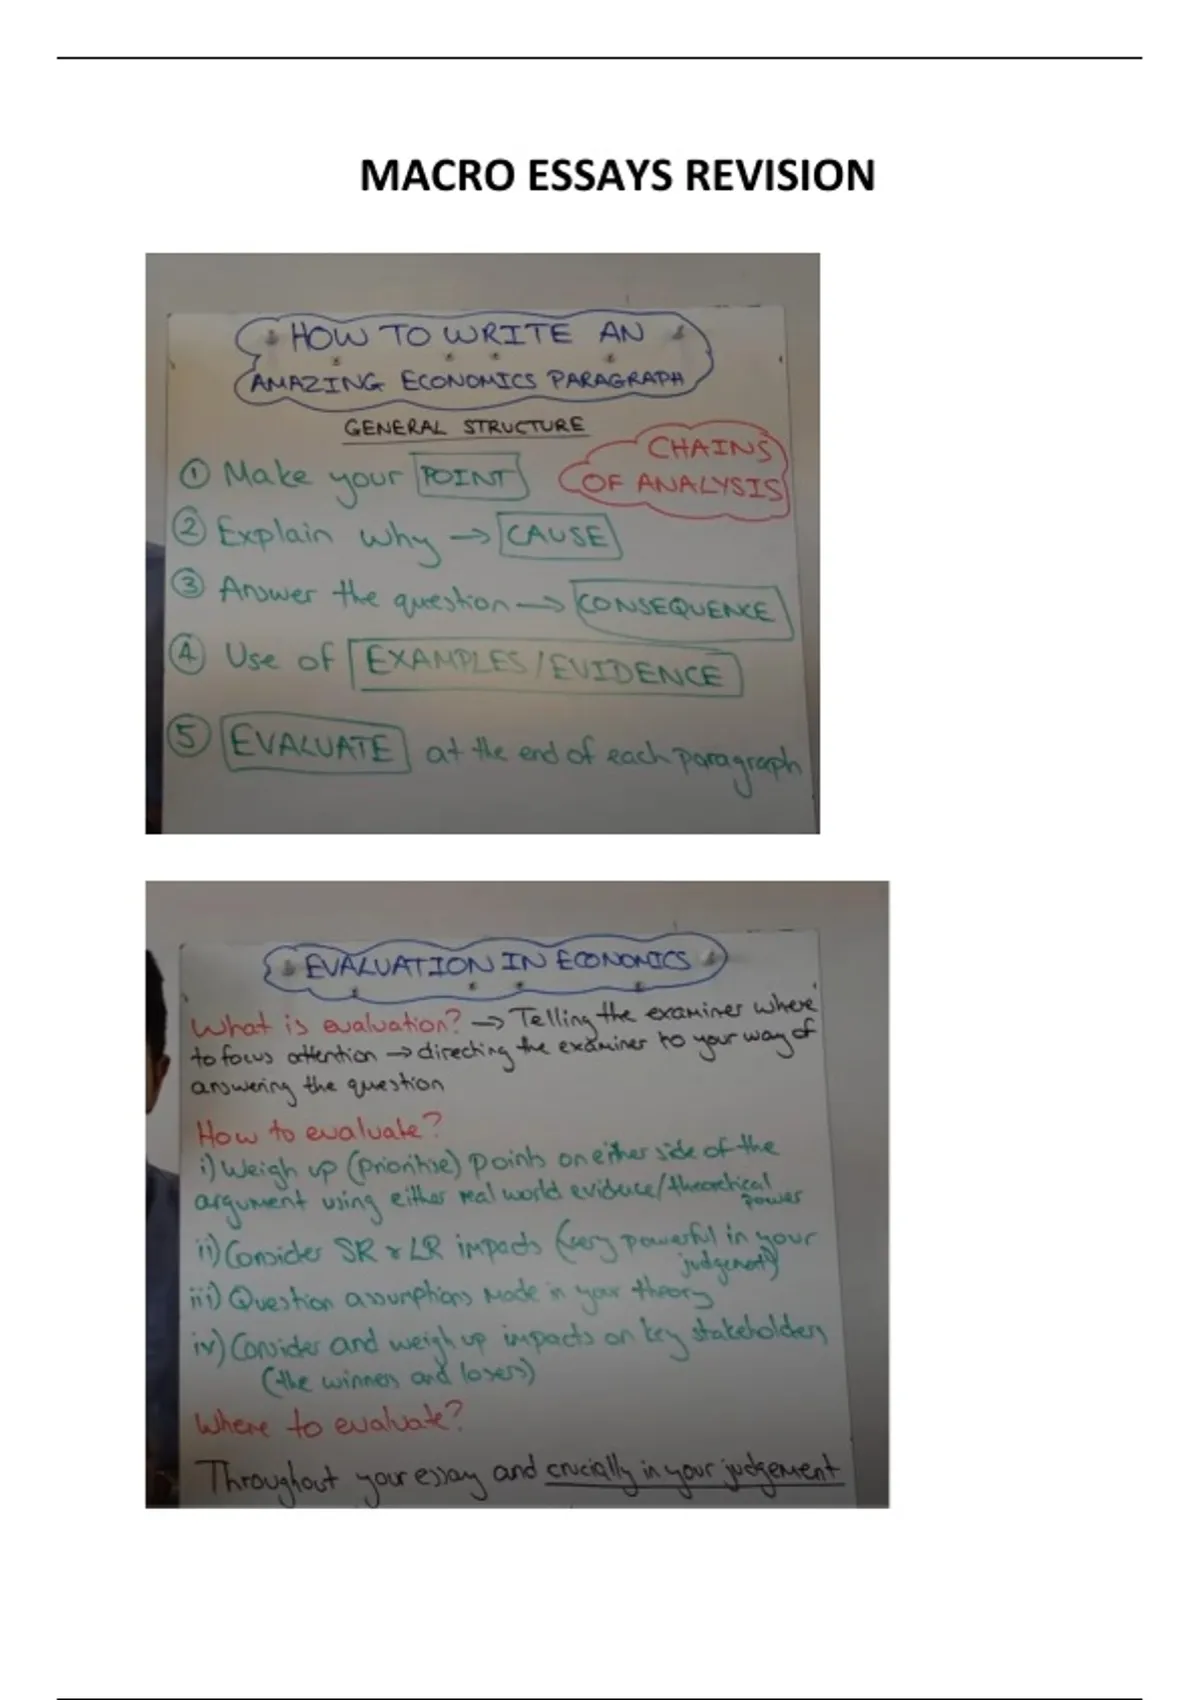 MACRO ESSAYS REVISION
HOW TO WRITE AN
AMAZING ECONOMICS PARAGRAPH
GENERAL STRUCTURE
CHAINS
OF ANALYSIS
① Make your POINT
② Explain why → CAUSE
③ Answer the question → CONSEQUENCE
④ Use of EXAMPLES/EVIDENCE
⑤ EVALUATE at the end of each paragraph
EVALUATION IN ECONOMICS
What is evaluation? → Telling the examiner where
to focus attention → directing the examiner to your way of
answering the question
How to evaluate?
i) Weigh up (prioritise) points on either side of the
argument using either real world evidence/theoretical
power
ii) Consider SR & LR impacts (very powerful in your
judgement)
iii) Question assumptions made in your theory
iv) Consider and weigh up impacts on key stakeholders
(the winners and losers)
Where to evaluate?
Throughout your essay and crucially in your judgement